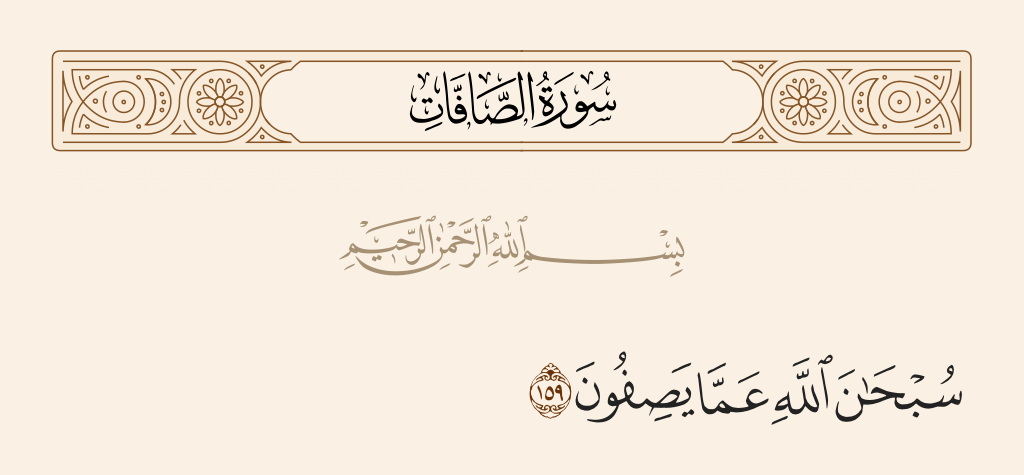 سُورَةُ الصَّافَّاتِ
بِسْمِ ٱللَّهِ ٱلرَّحْمَٰنِ ٱلرَّحِيمِ
سُبْحَٰنَ ٱللَّهِ عَمَّا يَصِفُونَ ١٥٩